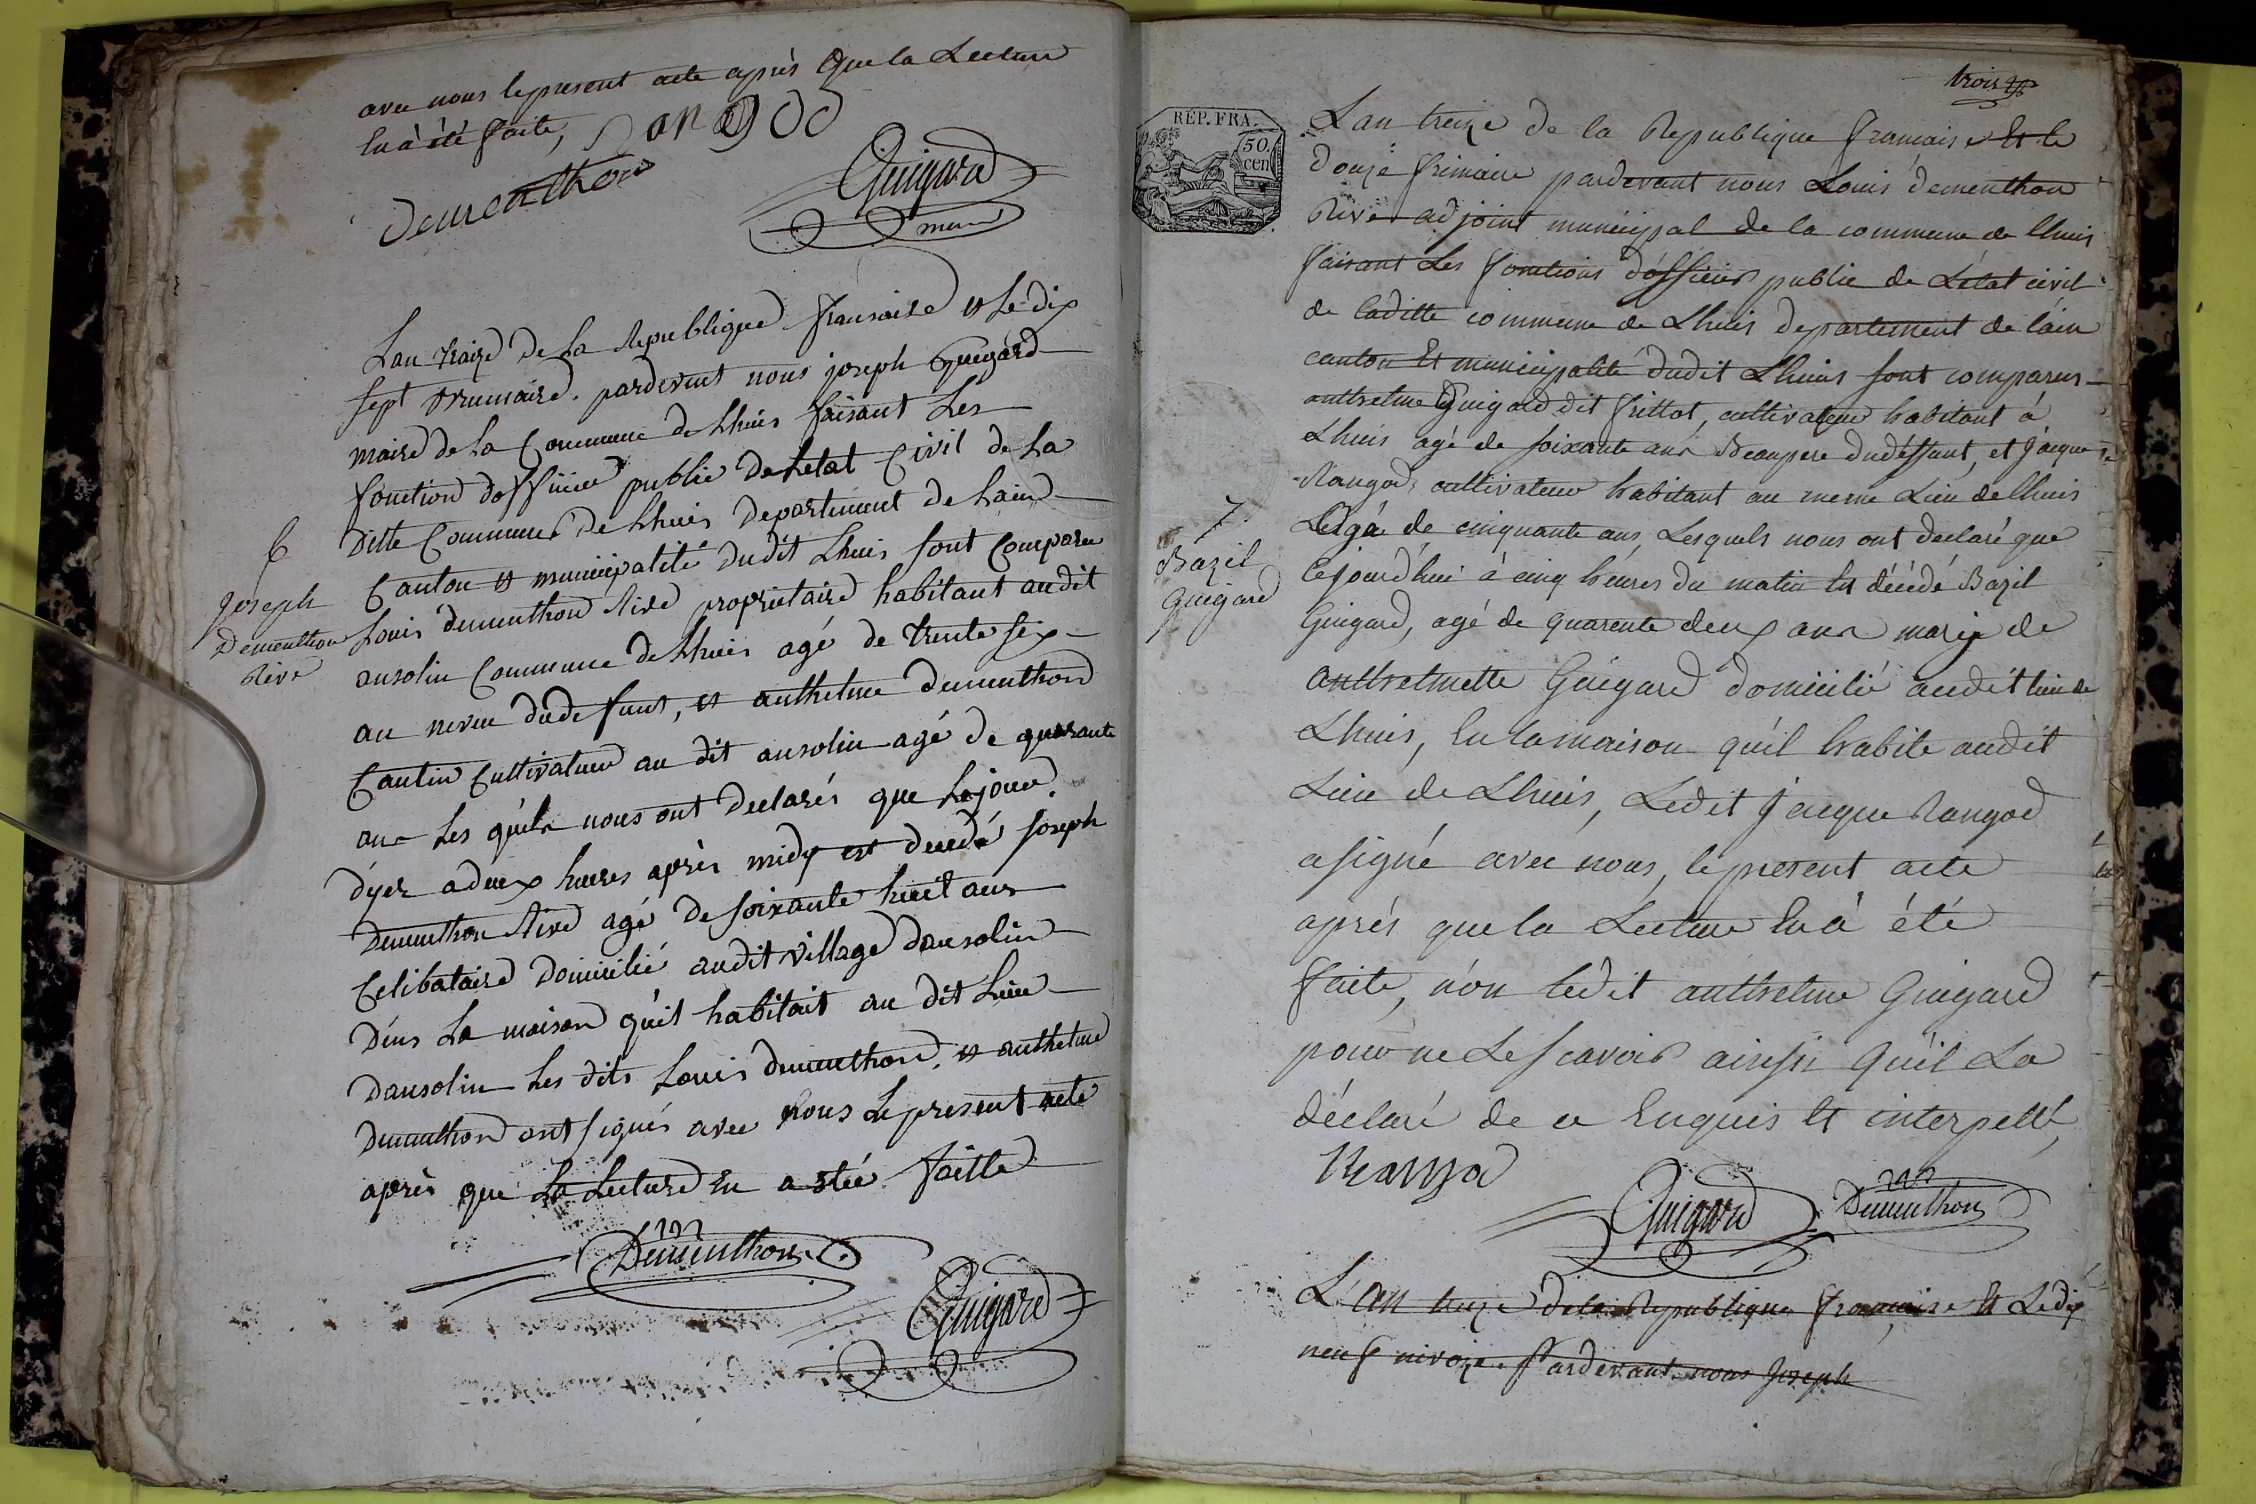 avec nous le present acte après que la Lecture
en à été faite,
demonthon
Guigard
maire
Lan traize de La Republique fransaise et Le dix
sept Brumaire. pardevent nous joseph Guigard
maire de La Commune de Lhuis faisant Les
fonction dofficier public de Letat Civil de La
ditte Commune de Lhuis departement de Lain
Canton et municipalité dudit Lhuis sont Comparu
Louis dementhon Rive proprietaire habitant audit
ansolin Commune de Lhuis agé de trente six
an neveu dudefunt, et anthelme dementhon
Cantin Cultivateur au dit ansolin agé de quarante
ans Les quels nous ont declarés que Lejour
dyer a deux heures après midy est decedé joseph
dementhon Rive agé de soixante huit ans
Celibataire domicilié audit village dansolin
dens La maison qu'il habitait au dit Lieu
dansolin Les dits Louis dementhon, et anthelme
dementhon ont signés avec nous Le present acte
après que La Lecture en a etée faitte
Dementhon
Guigard
6
Joseph
Dementhon
Rive
trois
RÉP. FRA.
50.
cen
L'an treize de la Republique francaise Et le
douze frimaire pardevant nous Louis dementhon
Rive adjoint municipal de la commune de lhuis
faisant Les fonctions d'officier public de L'état civil
de laditte commune de Lhuis departement de l'ain
canton Et municipalité dudit Lhuis sont comparus
anthelme Guigard dit frittot, cultivateur habitant à
Lhuis agé de soixante ans Beaupere dudéffunt, et Jacque
Rangod, cultivateur habitant au meme Lieu de lhuis
Agé de cinquante ans, Lesquels nous ont declaré que
cejourd'hui à cinq heures du matin Est décédé Bazil
Guigard, agé de quarente deux ans marié de
anthelmette Guigard domicilié audit lieu de
Lhuis, En la maison qu'il habite audit
Lieu de Lhuis, Ledit Jacque Rangod
a signé avec nous, le present acte
aprés que la Lecture En à été
faite, nón ledit anthelme Guigard
pour ne Le scavoir ainsÿ qu'il La
déclaré de ce Enquis Et interpellé,
Rangod
Guigard
Dementhon
7
Bazil
Guigard
L'an treize de la Republique française Et Le dix
neuf nivoze. Pardevant nous Joseph